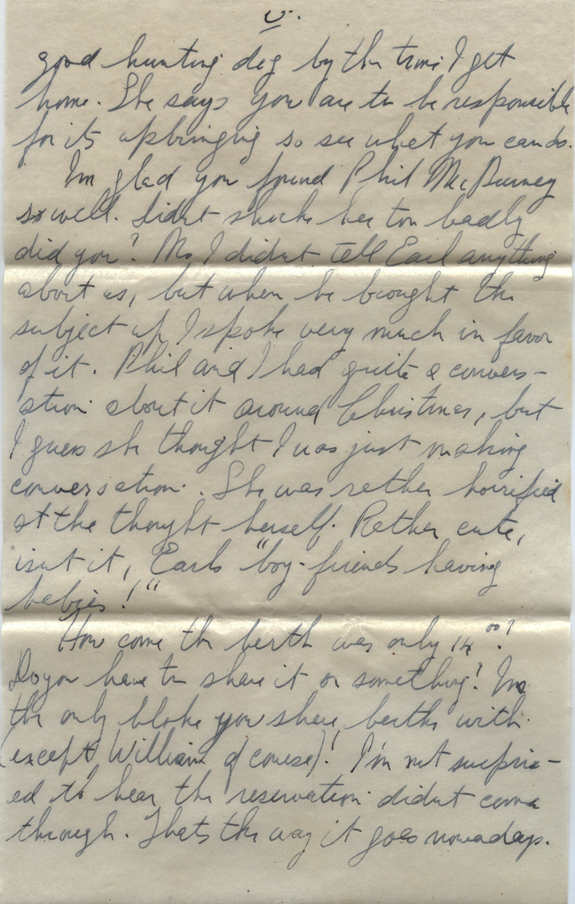 5.
good hunting dog by the time I get
home. She says you are to be responsible
for its upbringing so see what you can do.
I'm glad you found Phil McBurney
so well. Didnt shock her too badly
did you? No, I didnt tell Earl anything
about us, but when he brought the
subject up I spoke very much in favor
of it. Phil and I had quite a conver-
sation about it around Christmas, but
I guess she thought I was just making
conversation. She was rather horrified
at the thought herself. Rather cute,
isnt it, Earls "boy-friends having
babies!"
How come the berth was only 14.00?
Do you have to share it or something? I'm
the only bloke you share berths with
(except William of course)! I'm not surpris-
ed to hear the reservation didnt come
through. Thats the way it goes nowadays.